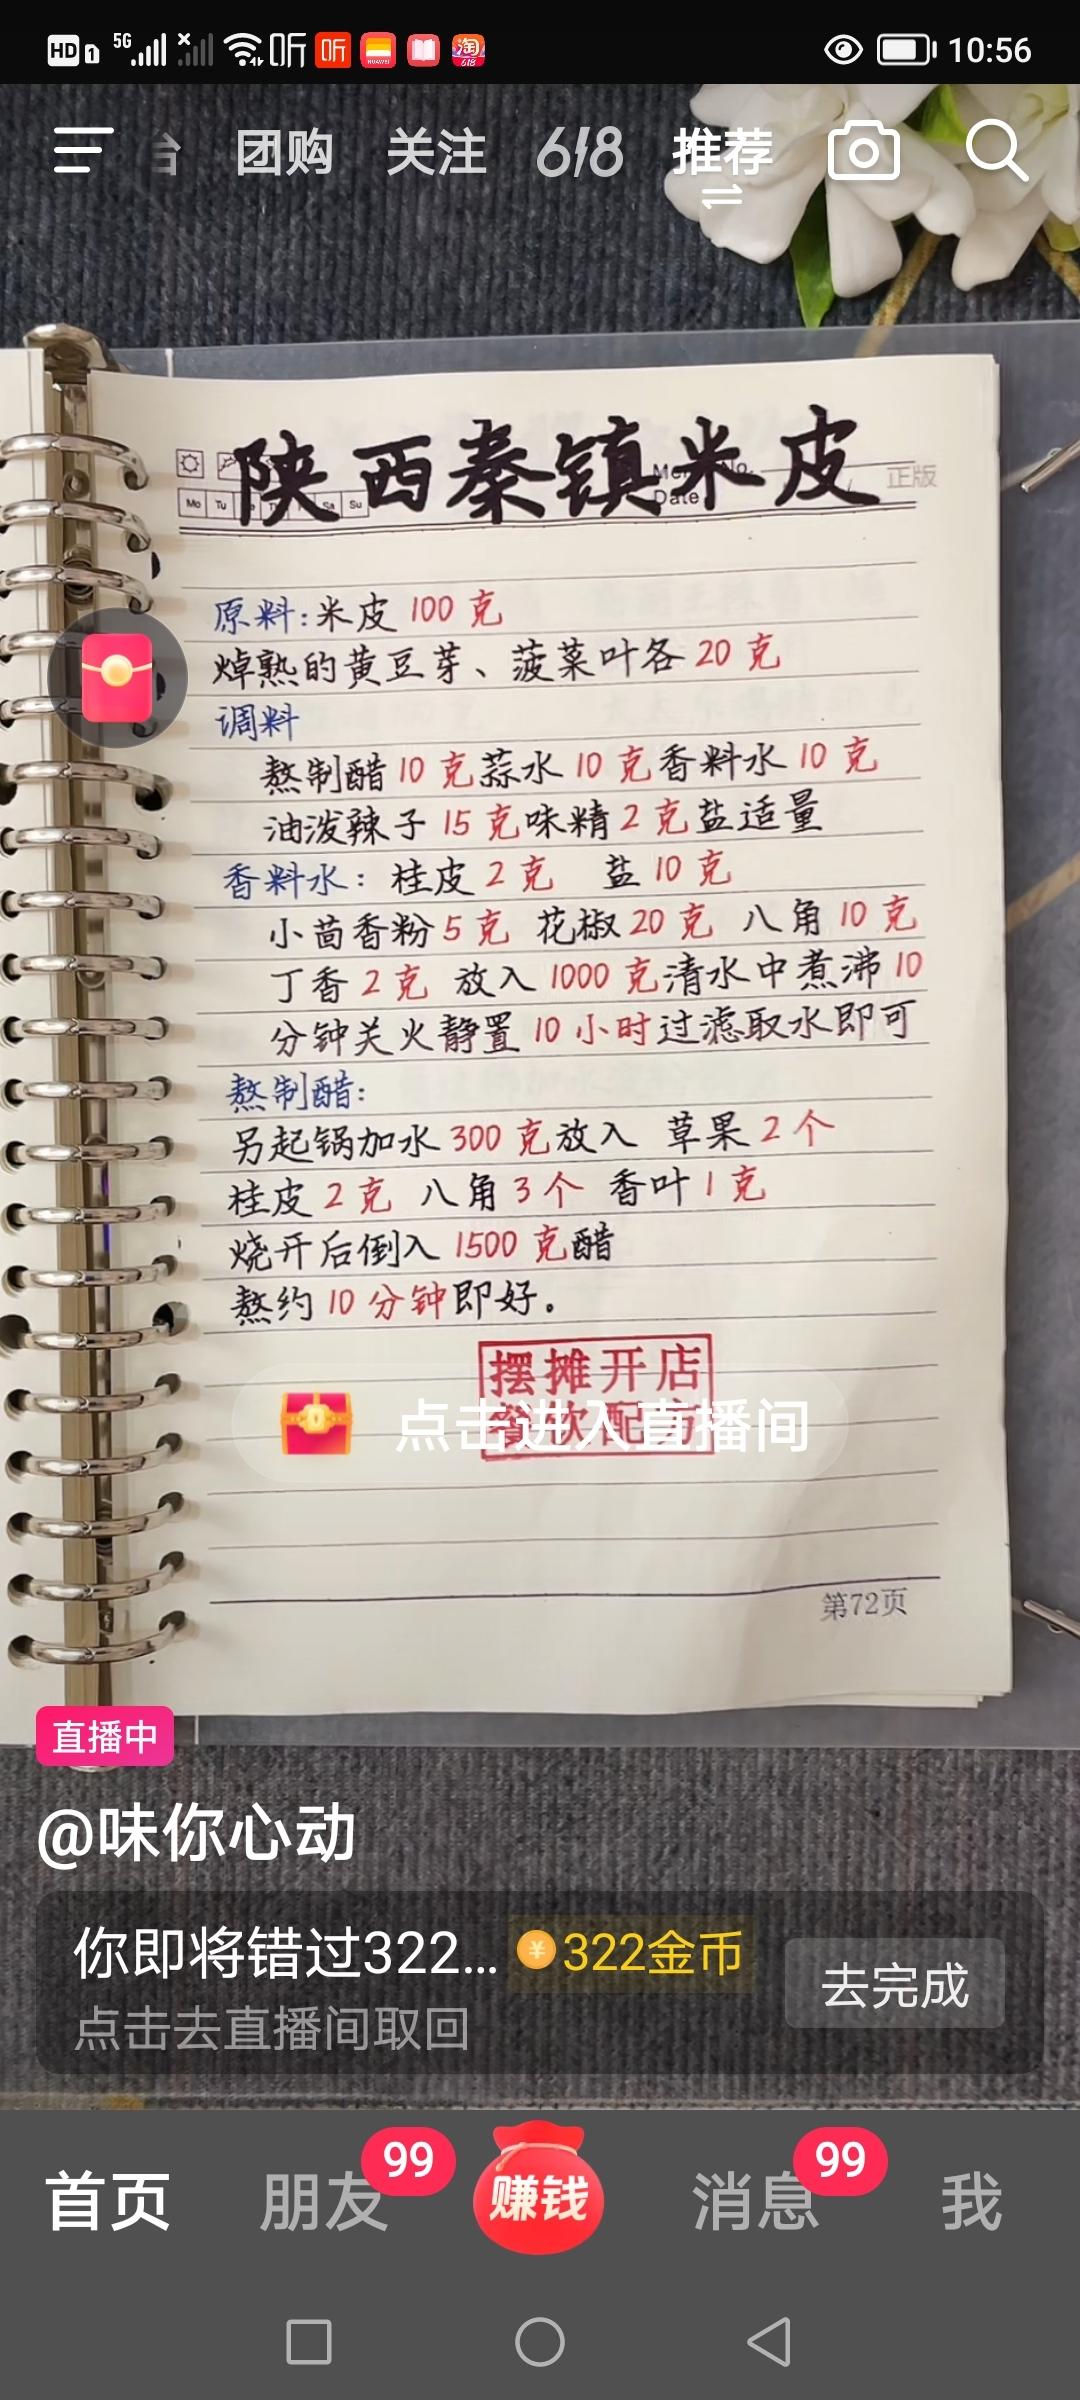 HD 1 5G 听 听 HUAWEI 淘 618 10:56
台 团购 关注 618 推荐
陕西秦镇米皮
正版
Mo Tu Sa Su
Date
原料:米皮 100 克
焯熟的黄豆芽、菠菜叶各 20 克
调料
熬制醋 10 克蒜水 10 克香料水 10 克
油泼辣子 15 克味精 2 克盐适量
香料水: 桂皮 2 克 盐 10 克
小茴香粉 5 克 花椒 20 克 八角 10 克
丁香 2 克 放入 1000 克清水中煮沸 10
分钟关火静置 10 小时过滤取水即可
熬制醋:
另起锅加水 300 克放入 草果 2 个
桂皮 2 克 八角 3 个 香叶 1 克
烧开后倒入 1500 克醋
熬约 10 分钟即好。
摆摊开店
餐饮配方
点击进入直播间
第72页
直播中
@味你心动
你即将错过322... 322金币
去完成
点击去直播间取回
首页 朋友 99 赚钱 消息 99 我